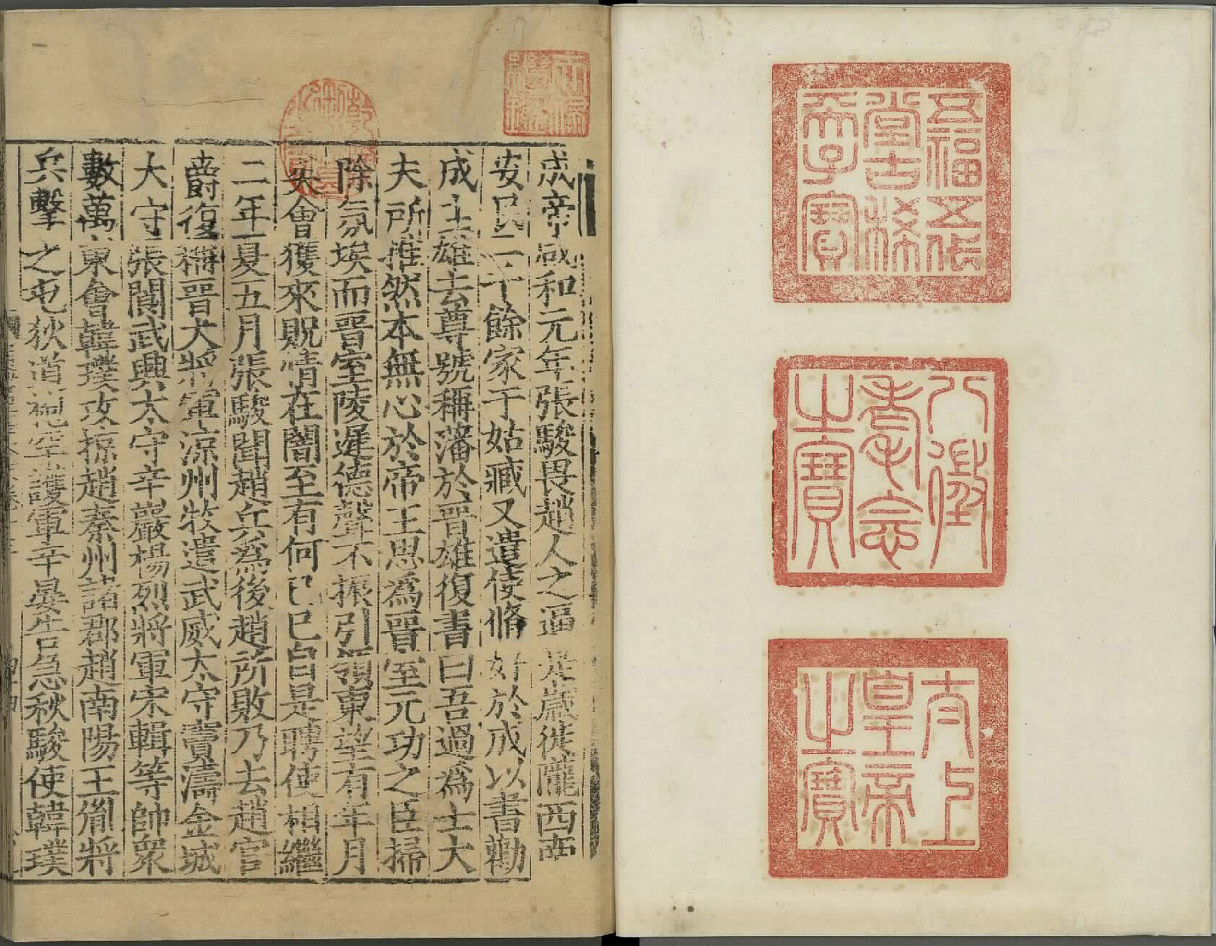 五福五代
堂古稀
天子寶
八徵
耄念
之寶
太上
皇帝
之寶
天祿
繼鑑
乾隆御覽之寶
成帝咸和元年張駿畏趙人之逼是歲徙隴西南
安民二千餘家于姑臧又遣使脩好於成以書勸
成主雄去尊號稱藩於晉雄復書曰吾過爲士大
夫所推然本無心於帝王思爲晉室元功之臣掃
除氛埃而晉室陵遲德聲不振引領東望有年月
矣會獲來貺情在闇至有何已已自是聘使相繼
二年夏五月張駿聞趙兵爲後趙所敗乃去趙官
爵復稱晉大將軍涼州牧遣武威太守竇濤金城
大守張閬武興太守辛巖楊烈將軍宋輯等帥衆
數萬東會韓璞攻掠趙秦州諸郡趙南陽王胤將
兵擊之屯狄道枹罕護軍辛晏告急秋駿使韓璞